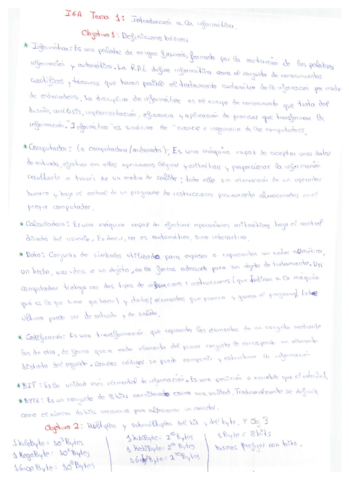 IFA Tema 1: Introducción a la informática
Objetivo 1: Definiciones básicas
* Informática: Es una palabra de origen francés, formada por la contracción de las palabras
información y automática. La R.A.E. define informática como el conjunto de conocimientos
científicos y técnicas que hacen posible el tratamiento automático de la información por medio
de ordenadores. La disciplina de informática es el cuerpo de conocimiento que trata del
diseño, análisis, implementación, eficiencia y aplicación de procesos que transforman la
información. Informática es sinónimo de "ciencia e ingeniería de los computadores.
* Computador: (o computadora/ordenador). Es una máquina capaz de aceptar unos datos
de entrada, efectuar con ellos operaciones lógicas y aritméticas, y proporcionar la información
resultante a través de un medio de salida; todo ello sin intervención de un operador
humano y bajo el control de un programa de instrucciones previamente almacenado en el
propio computador.
* Calculadora: Es una máquina capaz de efectuar operaciones aritméticas bajo el control
directo del usuario. Es decir, no es automática, sino interactiva.
* Datos: Conjunto de símbolos utilizados para expresar o representar un valor numérico,
un hecho, una idea o un objeto, en la forma adecuada para ser objeto de tratamiento. Un
computador trabaja con dos tipos de informaciones: instrucciones (que indican a la máquina
qué es lo que tiene que hacer) y datos (elementos que procesa y genera el programa). Este
último puede ser de entrada y de salida.
* Codificación: Es una transformación que representa los elementos de un conjunto mediante
los de otro, de forma que a cada elemento del primer conjunto le corresponde un elemento
distinto del segundo. Con los códigos se puede comprimir y estructurar la información
* BIT: Es la unidad más elemental de información. Es una posición o variable que el valor 0,1.
* BYTE: Es un conjunto de 8 bits considerado como una unidad. Tradicionalmente se definía
como el número de bits necesarios para almacenar un carácter.
Objetivo 2: Múltiplos y submúltiplos del bit y del byte,
1 KiloByte = 10³ Bytes
1 KiloByte = 2¹⁰ Bytes
1 Byte = 8 bits
1 MegaByte = 10⁶ Bytes
1 GigaByte = 10⁹ Bytes